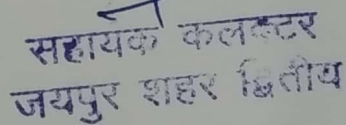 सहायक कलक्टर
जयपुर शहर द्वितीय